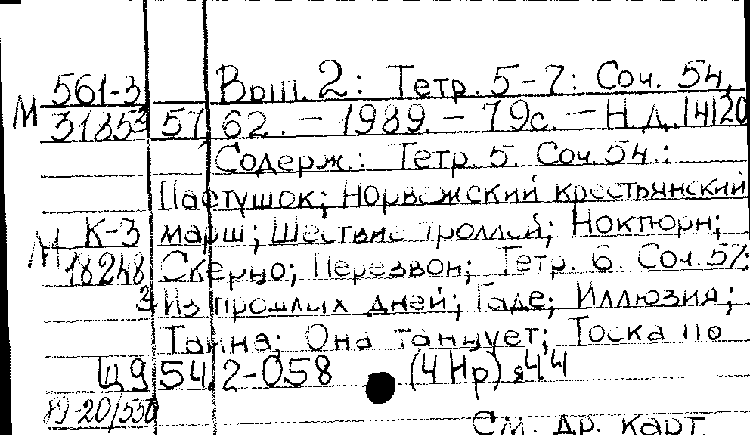 561-3 Вып. 2: Тетр. 5-7: Соч. 54,
М 31853 57, 62. – 1989. – 79с. – Н.д. 14120
Содерж.: Тетр. 5. Соч. 54.:
Пастушок; Норвежский крестьянский
К-3 марш; Шествие троллей; Ноктюрн;
М 18248 Скерцо; Перезвон; Тетр. 6. Соч. 57:
3 Из прошлых дней; Гаде; Иллюзия;
Тайна; Она танцует; Тоска по
Щ9 54.2-058 (4 Нр) я4.4
89-20/550
См. др. карт.